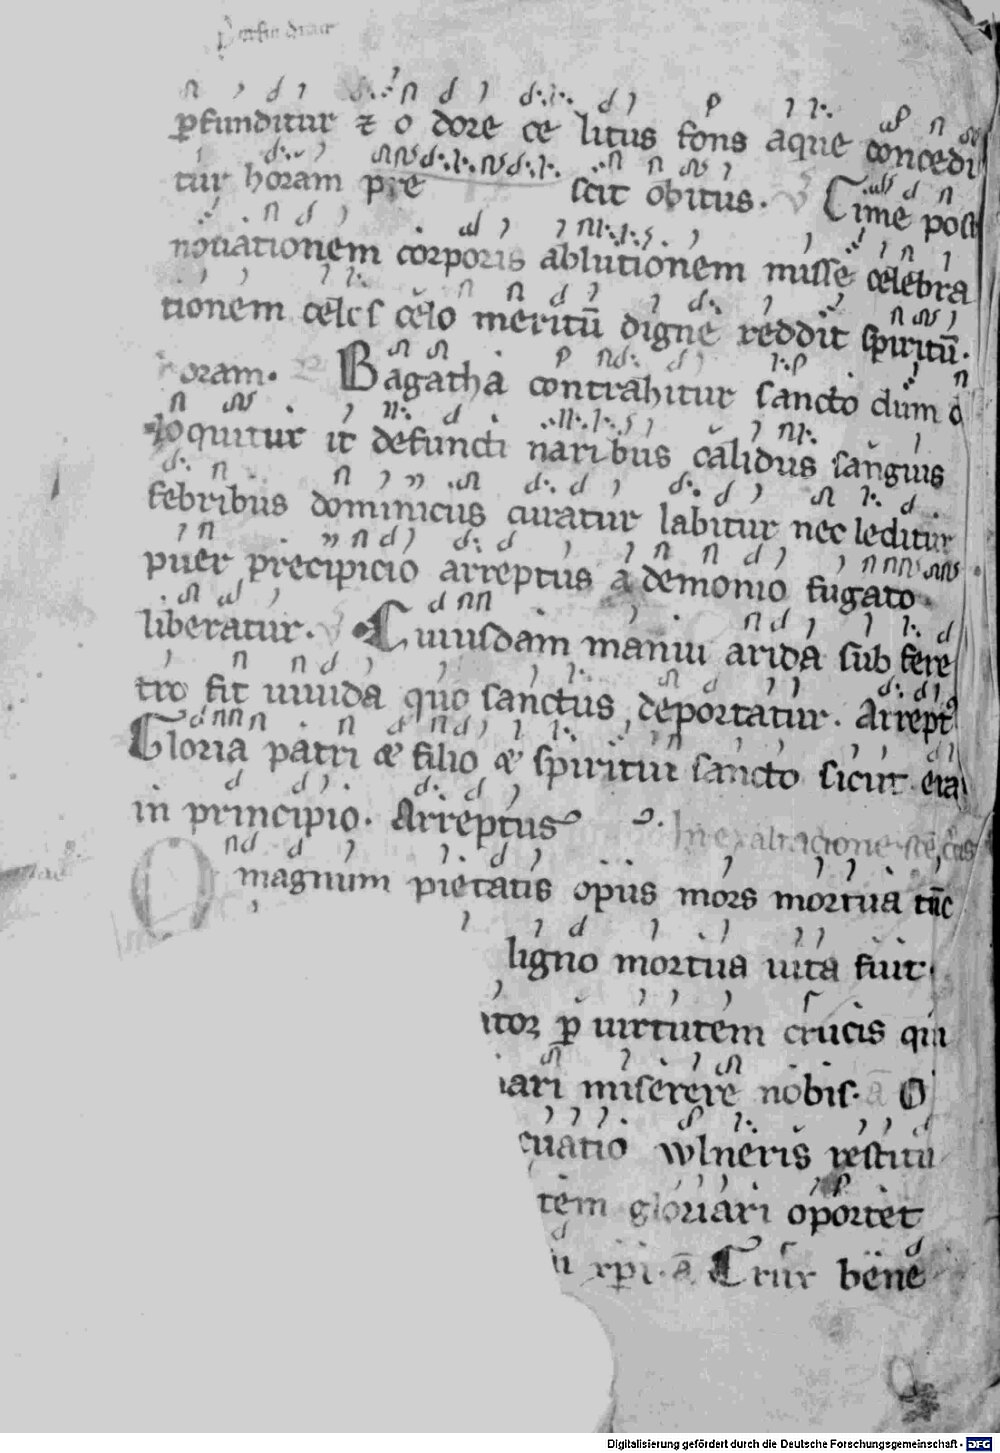 ꝑfunditur ⁊ o dore ce litus fons aque concedi
tur horam pre scit obitus. V Cime post
nouationem corporis ablutionem misse celebra
tionem celo meritū digne reddit spiritū.
horam. Bagatha contrahitur sancto dum
loquitur it defuncti naribus calidus sanguis
febribus dominicus curatur labitur nec leditur
puer precipicio arreptus a demonio fugato
liberatur. V Cuiusdam maniu arida sub fere
tro fit uiuida quo sanctus deportatur. Arrept
Gloria patri & filio & spiritui sancto sicut era
in principio. Arreptus
In exaltacione scē cͥcis
O magnum pietatis opus mors mortua tūc
ligno mortua uita fuit.
itor ꝑ uirtutem crucis qui
iari miserere nobis. a O
cuatio wlneris restitu
tem gloriari oportet
xpi. a Crux bene
Digitalisierung gefördert durch die Deutsche Forschungsgemeinschaft - DFG